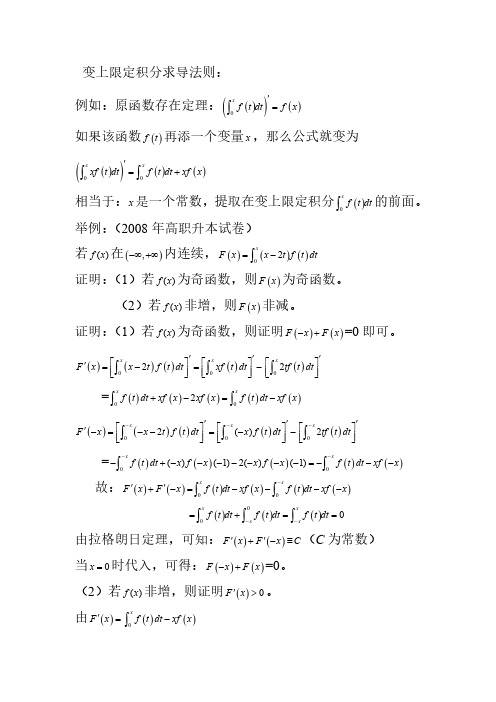 变上限定积分求导法则：
例如：原函数存在定理：(∫₀ˣ f(t)dt)′ = f(x)
如果该函数 f(t) 再添一个变量 x，那么公式就变为
(∫₀ˣ xf(t)dt)′ = ∫₀ˣ f(t)dt + xf(x)
相当于：x 是一个常数，提取在变上限定积分 ∫₀ˣ f(t)dt 的前面。
举例：（2008 年高职升本试卷）
若 f(x) 在 (−∞,+∞) 内连续，F(x) = ∫₀ˣ (x−2t)f(t)dt
证明：（1）若 f(x) 为奇函数，则 F(x) 为奇函数。
（2）若 f(x) 非增，则 F(x) 非减。
证明：（1）若 f(x) 为奇函数，则证明 F(−x)+F(x)=0 即可。
F′(x) = [∫₀ˣ (x−2t)f(t)dt]′ = [∫₀ˣ xf(t)dt]′ − [∫₀ˣ 2tf(t)dt]′
=∫₀ˣ f(t)dt + xf(x) − 2xf(x) = ∫₀ˣ f(t)dt − xf(x)
F′(−x) = [∫₀⁻ˣ (−x−2t)f(t)dt]′ = [∫₀⁻ˣ (−x)f(t)dt]′ − [∫₀⁻ˣ 2tf(t)dt]′
=−∫₀⁻ˣ f(t)dt + (−x)f(−x)(−1) − 2(−x)f(−x)(−1) = −∫₀⁻ˣ f(t)dt − xf(−x)
故：F′(x) + F′(−x) = ∫₀ˣ f(t)dt − xf(x) − ∫₀⁻ˣ f(t)dt − xf(−x)
= ∫₀ˣ f(t)dt + ∫₋ₓ⁰ f(t)dt = ∫₋ₓˣ f(t)dt = 0
由拉格朗日定理，可知：F′(x) + F′(−x) ≡ C（C 为常数）
当 x = 0 时代入，可得：F(−x)+F(x)=0。
（2）若 f(x) 非增，则证明 F′(x) > 0。
由 F′(x) = ∫₀ˣ f(t)dt − xf(x)